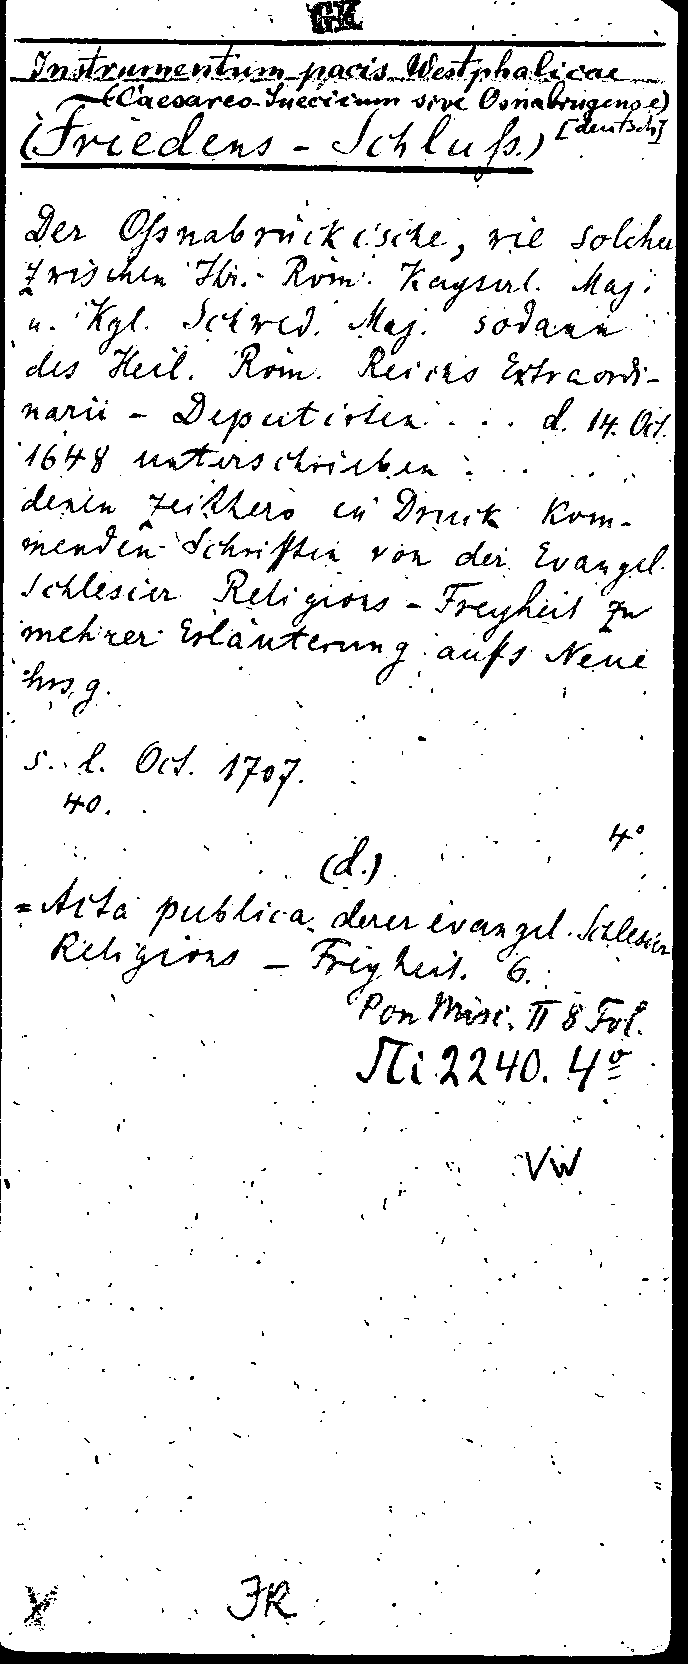 GK
Instrumentum pacis Westphalicae
(Caesareo-Suecicum sive Osnabrugense)
[deutsch]
(Friedens-Schluß.)
Der Oßnabrückische, wie solcher
zwischen Ihr. Röm. Kayserl. Maj.
u. Kgl. Schwed. Maj. sodann
des Heil. Röm. Reichs Extraordi-
narii - Deputirten . . . d. 14. Oct.
1648 unterschrieben . . . .
denen zeithero in Druck kom-
menden Schrifften von der Evangel.
Schlesier Religions-Freyheit zu
mehrer Erläuterung aufs Neue
hrsg.
s. l. Oct. 1707.
40.
4°
(d.)
= Acta publica derer evangel. Schlesier
Religions-Freyheit. 6.
Pon Misc. II 8 Fol.
Mi 2240. 4º
VW
JR